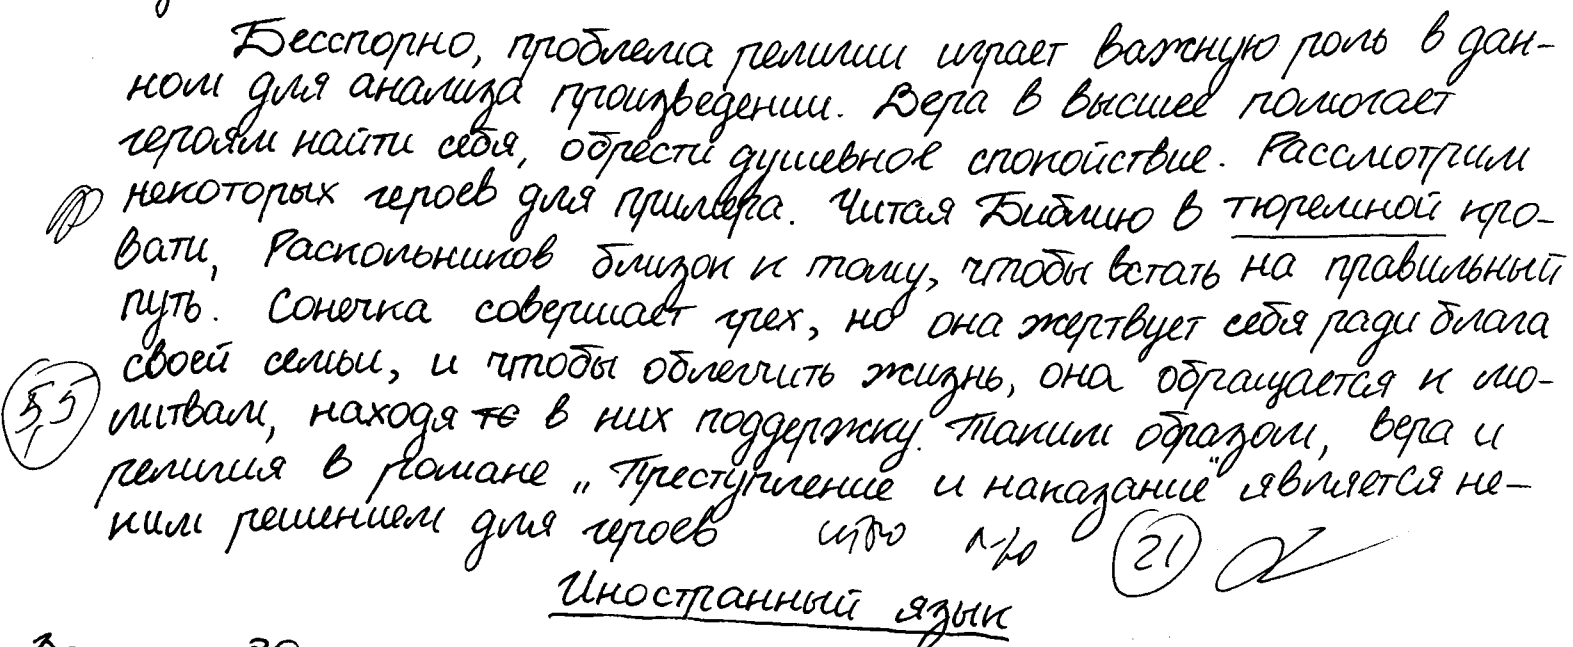 Бесспорно, проблема религии играет важную роль в дан-
ном для анализа произведении. Вера в высшее помогает
героям найти себя, обрести душевное спокойствие. Рассмотрим
некоторых героев для примера. Читая Библию в тюремной кро-
вати, Раскольников близок к тому, чтобы встать на правильный
путь. Сонечка совершает грех, но она жертвует себя ради блага
своей семьи, и чтобы облегчить жизнь, она обращается к мо-
5,5
литвам, находя те в них поддержку. Таким образом, вера и
религия в романе „Преступление и наказание" является не-
ким решением для героев
21
Иностранный язык